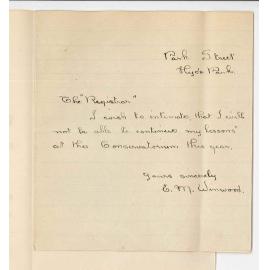 Park Street
Hyde Park.
The "Registrar"
I wish to intimate, that I will
not be able to continue my lessons
at the Conservatorium this year.
Yours sincerely
E. M. Winwood.